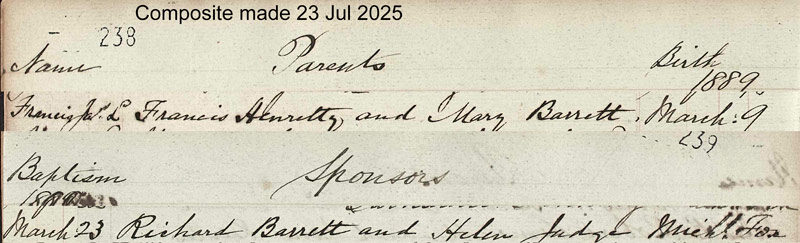 Composite made 23 Jul 2025
238
Name Parents Birth
1889
Francis Wm L Francis Henretty and Mary Barrett. March: 9
239
Baptism Sponsors
March 23 Richard Barrett and Helen Judge Michl. Fox